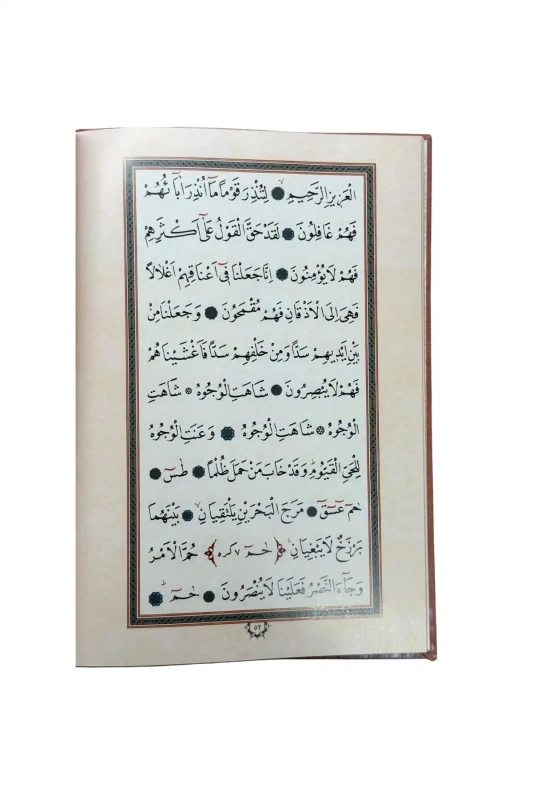 الْعَزِيزِ الرَّحِيمِ ۙ لِتُنْذِرَ قَوْمًا مَآ اُنْذِرَ اٰبَآئُهُمْ
فَهُمْ غَافِلُونَ لَقَدْ حَقَّ الْقَوْلُ عَلٰٓى اَكْثَرِهِمْ
فَهُمْ لَا يُؤْمِنُونَ اِنَّا جَعَلْنَا فٖٓى اَعْنَاقِهِمْ اَغْلَالًا
فَهِىَ اِلَى الْاَذْقَانِ فَهُمْ مُقْمَحُونَ وَجَعَلْنَا مِنْ
بَيْنِ اَيْدٖيهِمْ سَدًّا وَمِنْ خَلْفِهِمْ سَدًّا فَاَغْشَيْنَاهُمْ
فَهُمْ لَا يُبْصِرُونَ شَاهَتِ الْوُجُوهُ * شَاهَتِ
الْوُجُوهُ * شَاهَتِ الْوُجُوهُ وَعَنَتِ الْوُجُوهُ
لِلْحَىِّ الْقَيُّومِ ۜ وَقَدْ خَابَ مَنْ حَمَلَ ظُلْمًا طٰسٓ
حٰمٓ عٓسٓقٓ مَرَجَ الْبَحْرَيْنِ يَلْتَقِيَانِ ۙ بَيْنَهُمَا
بَرْزَخٌ لَا يَبْغِيَانِ ﴿ حٰمٓ ٧ كره ﴾ حُمَّ الْاَمْرُ
وَجَآءَ النَّصْرُ فَعَلَيْنَا لَا يُنْصَرُونَ حٰمٓ
٥٢